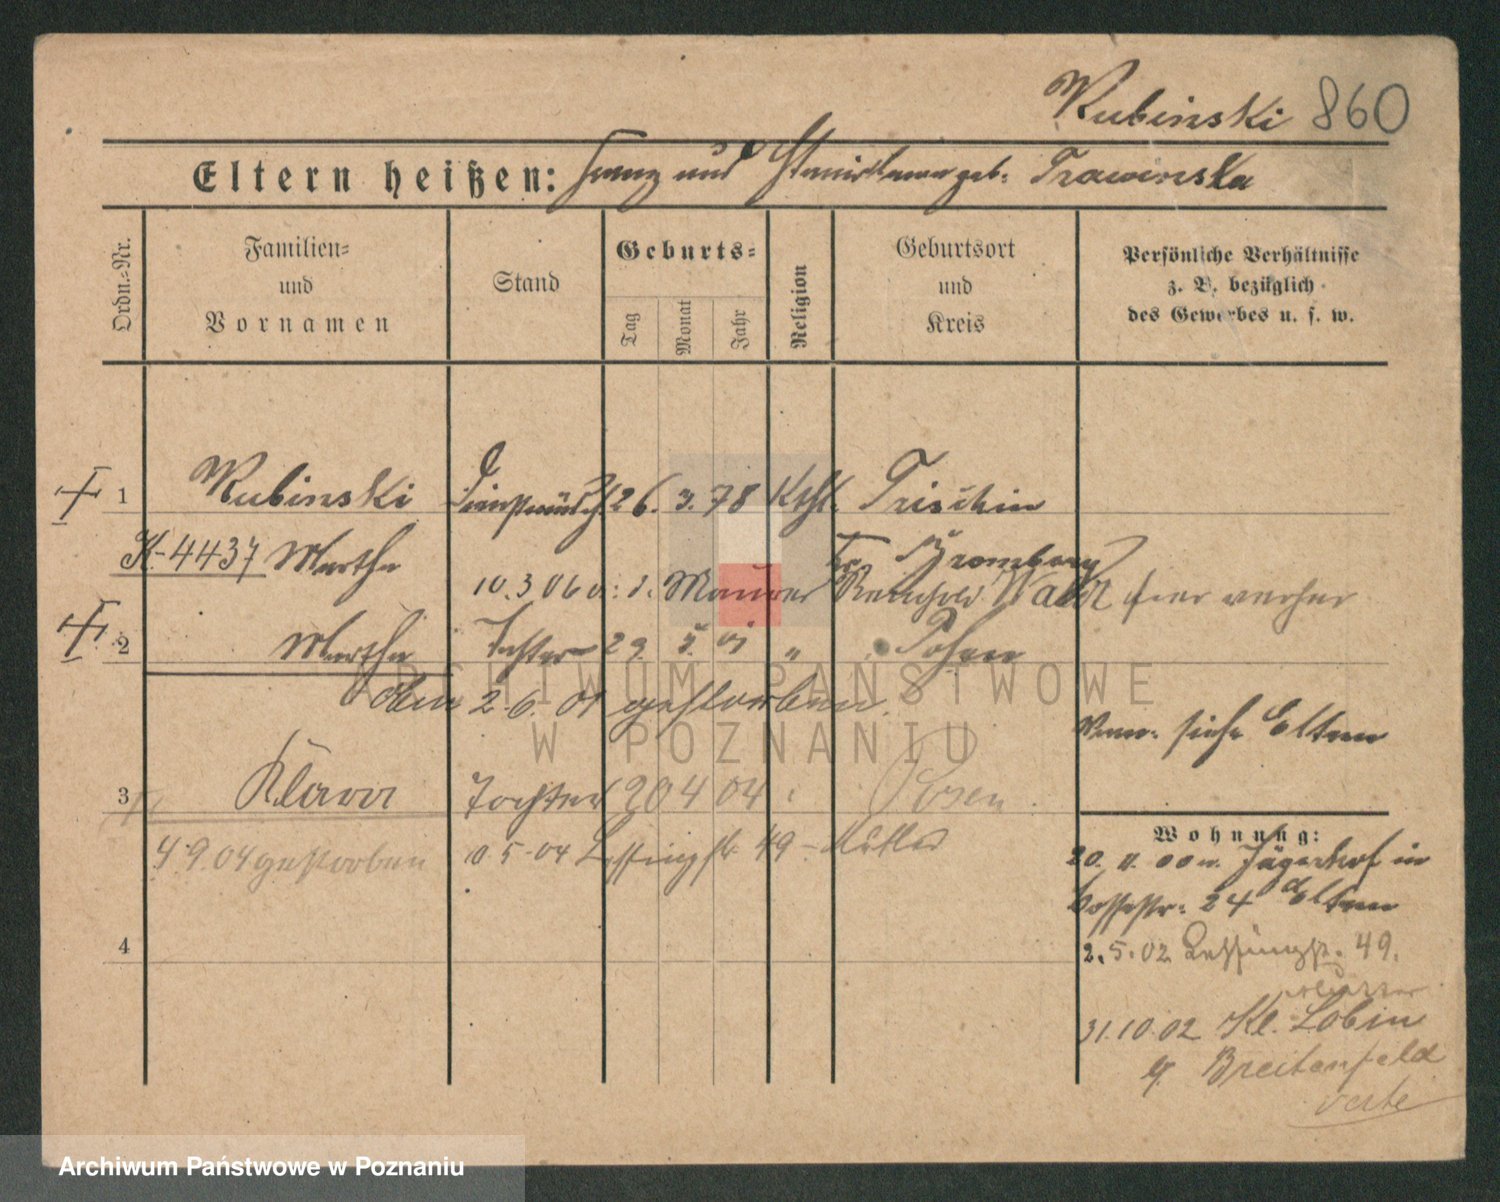 Rubinski 860
Eltern heißen: Franz und Stanislawa geb. Trawinska
Ordn.-Nr.
Familien-
und
Vornamen
Stand
Geburts-
Tag
Monat
Jahr
Religion
Geburtsort
und
Kreis
Persönliche Verhältnisse
z. B. bezüglich
des Gewerbes u. s. w.
1 Rubinski 26. 3. 78 Kthl. Trischin
K-4437 Martha Kr. Bromberg
10.3.06 Maurer
2 Martha Tochter 29. 5. 01 " Posen
2.6.01 gestorben.
siehe Eltern
3 Klara Tochter 20 4 04 Posen
4.9.04 gestorben 5.04 Lessingstr 49 - Mutter
4
Wohnung:
Jägerhof in
24 Eltern
2.5.02 Lessingstr. 49.
Mutter
31.10.02 Kl. Lobin
Breitenfeld
verte
ARCHIWUM PAŃSTWOWE
W POZNANIU
Archiwum Państwowe w Poznaniu